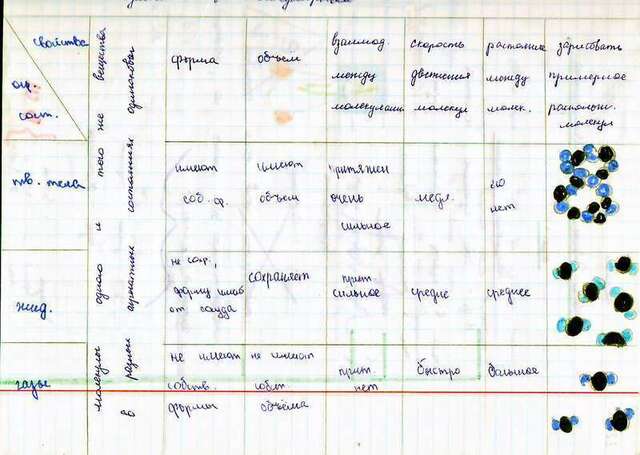 свойства
агр.
сост.
молекулы одного и того же вещества
в разных агрегатных состояниях одинаковы
форма
объем
взаимод.
между
молекулами
скорость
движения
молекул
расстояние
между
молек.
зарисовать
примерное
располож.
молекул
тв. тела
имеют
соб. ф.
имеют
объем
притяжен
очень
сильное
медл.
его
нет
жид.
не сохр.,
форму
от сосуда
сохраняет
прит.
сильное
средне
среднее
газы
не имеют
собств.
формы
не имеют
собст
объёма
прит.
нет
быстро
большое